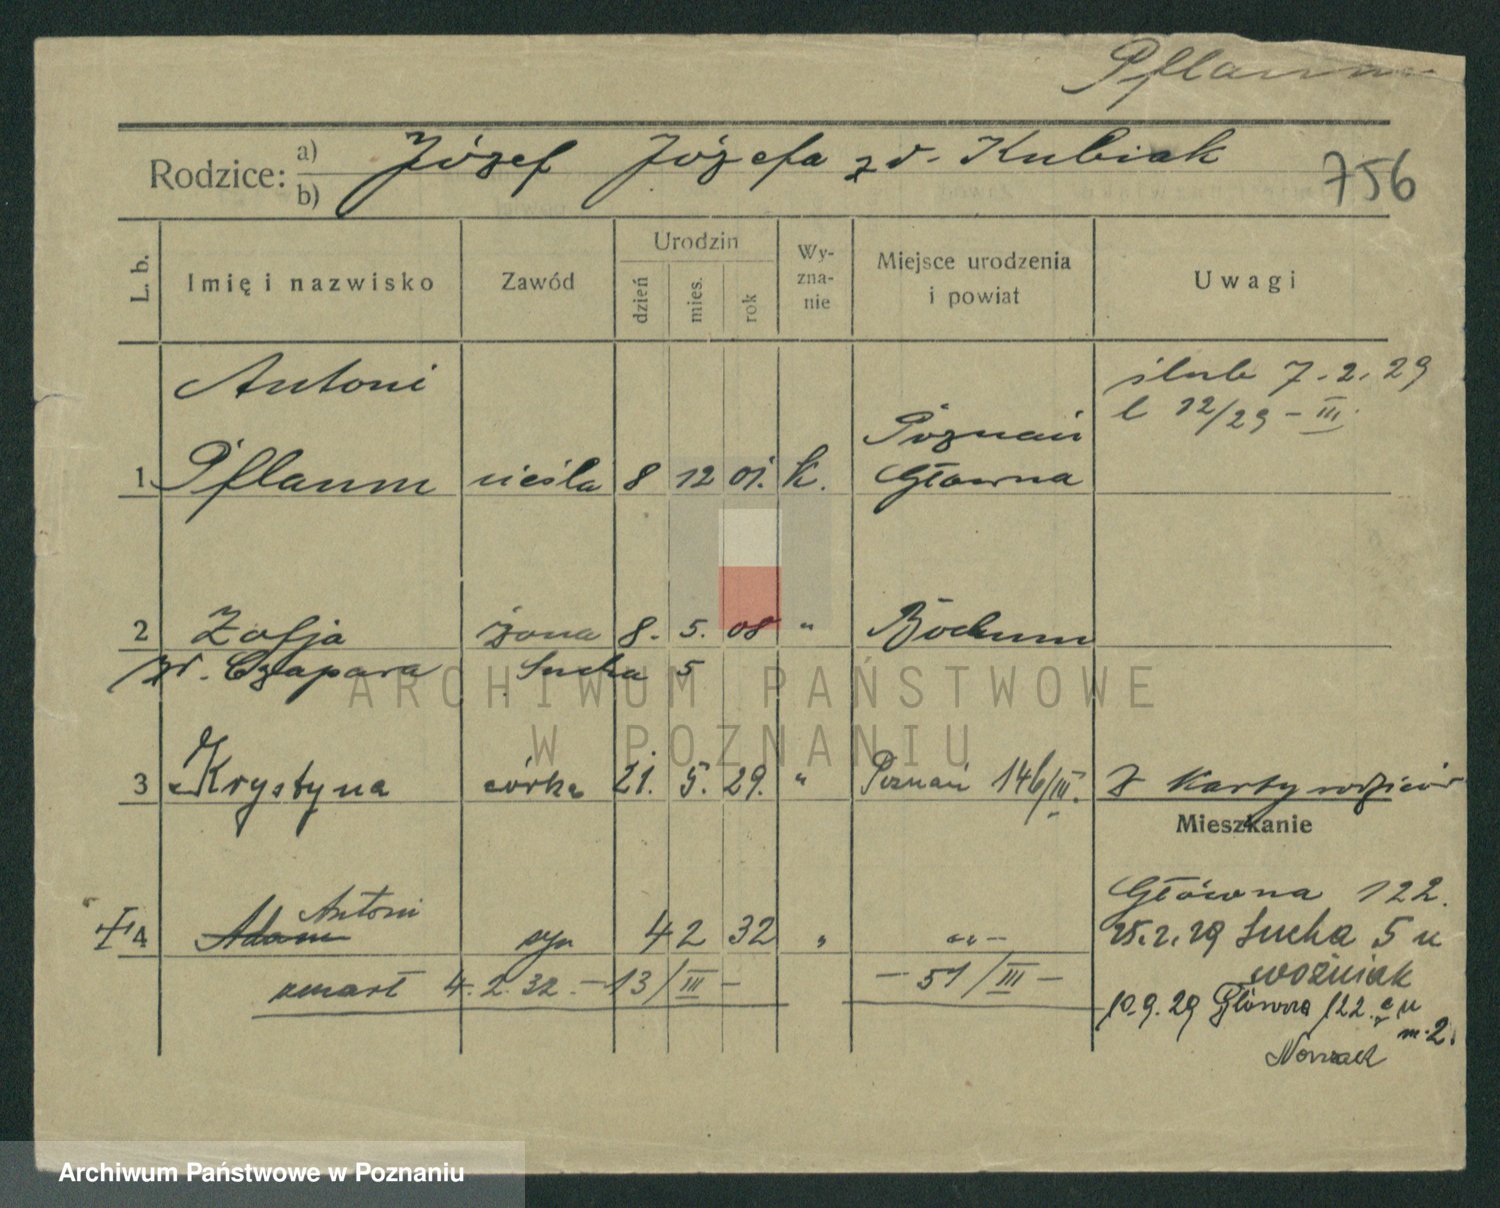 Pflaum
Rodzice: a) b) Józef Józefa zd. Kubiak
756
L. b.
Imię i nazwisko
Zawód
Urodzin
dzień
mies.
rok
Wy-
zna-
nie
Miejsce urodzenia
i powiat
Uwagi
Antoni
ślub 7.2.29
l 12/29 - III.
1 Pflaum cieśla 8 12 01. k. Poznań
Główna
2 Zofja żona 8. 5. 08 " Bochum
zd. Czapara Sucha 5
3 Krystyna córka 21. 5. 29. " Poznań 146/III. Z karty rodziców
Mieszkanie
Antoni
4 Adam syn 4 2 32 " -"-
zmarł 4.2.32. - 13/III - - 51/III -
Główna 122.
25.2.29 Sucha 5 u
Woźniak
10.9.29 Główna 122. u
m. 2.
Nowack
ARCHIWUM PAŃSTWOWE
W POZNANIU
Archiwum Państwowe w Poznaniu